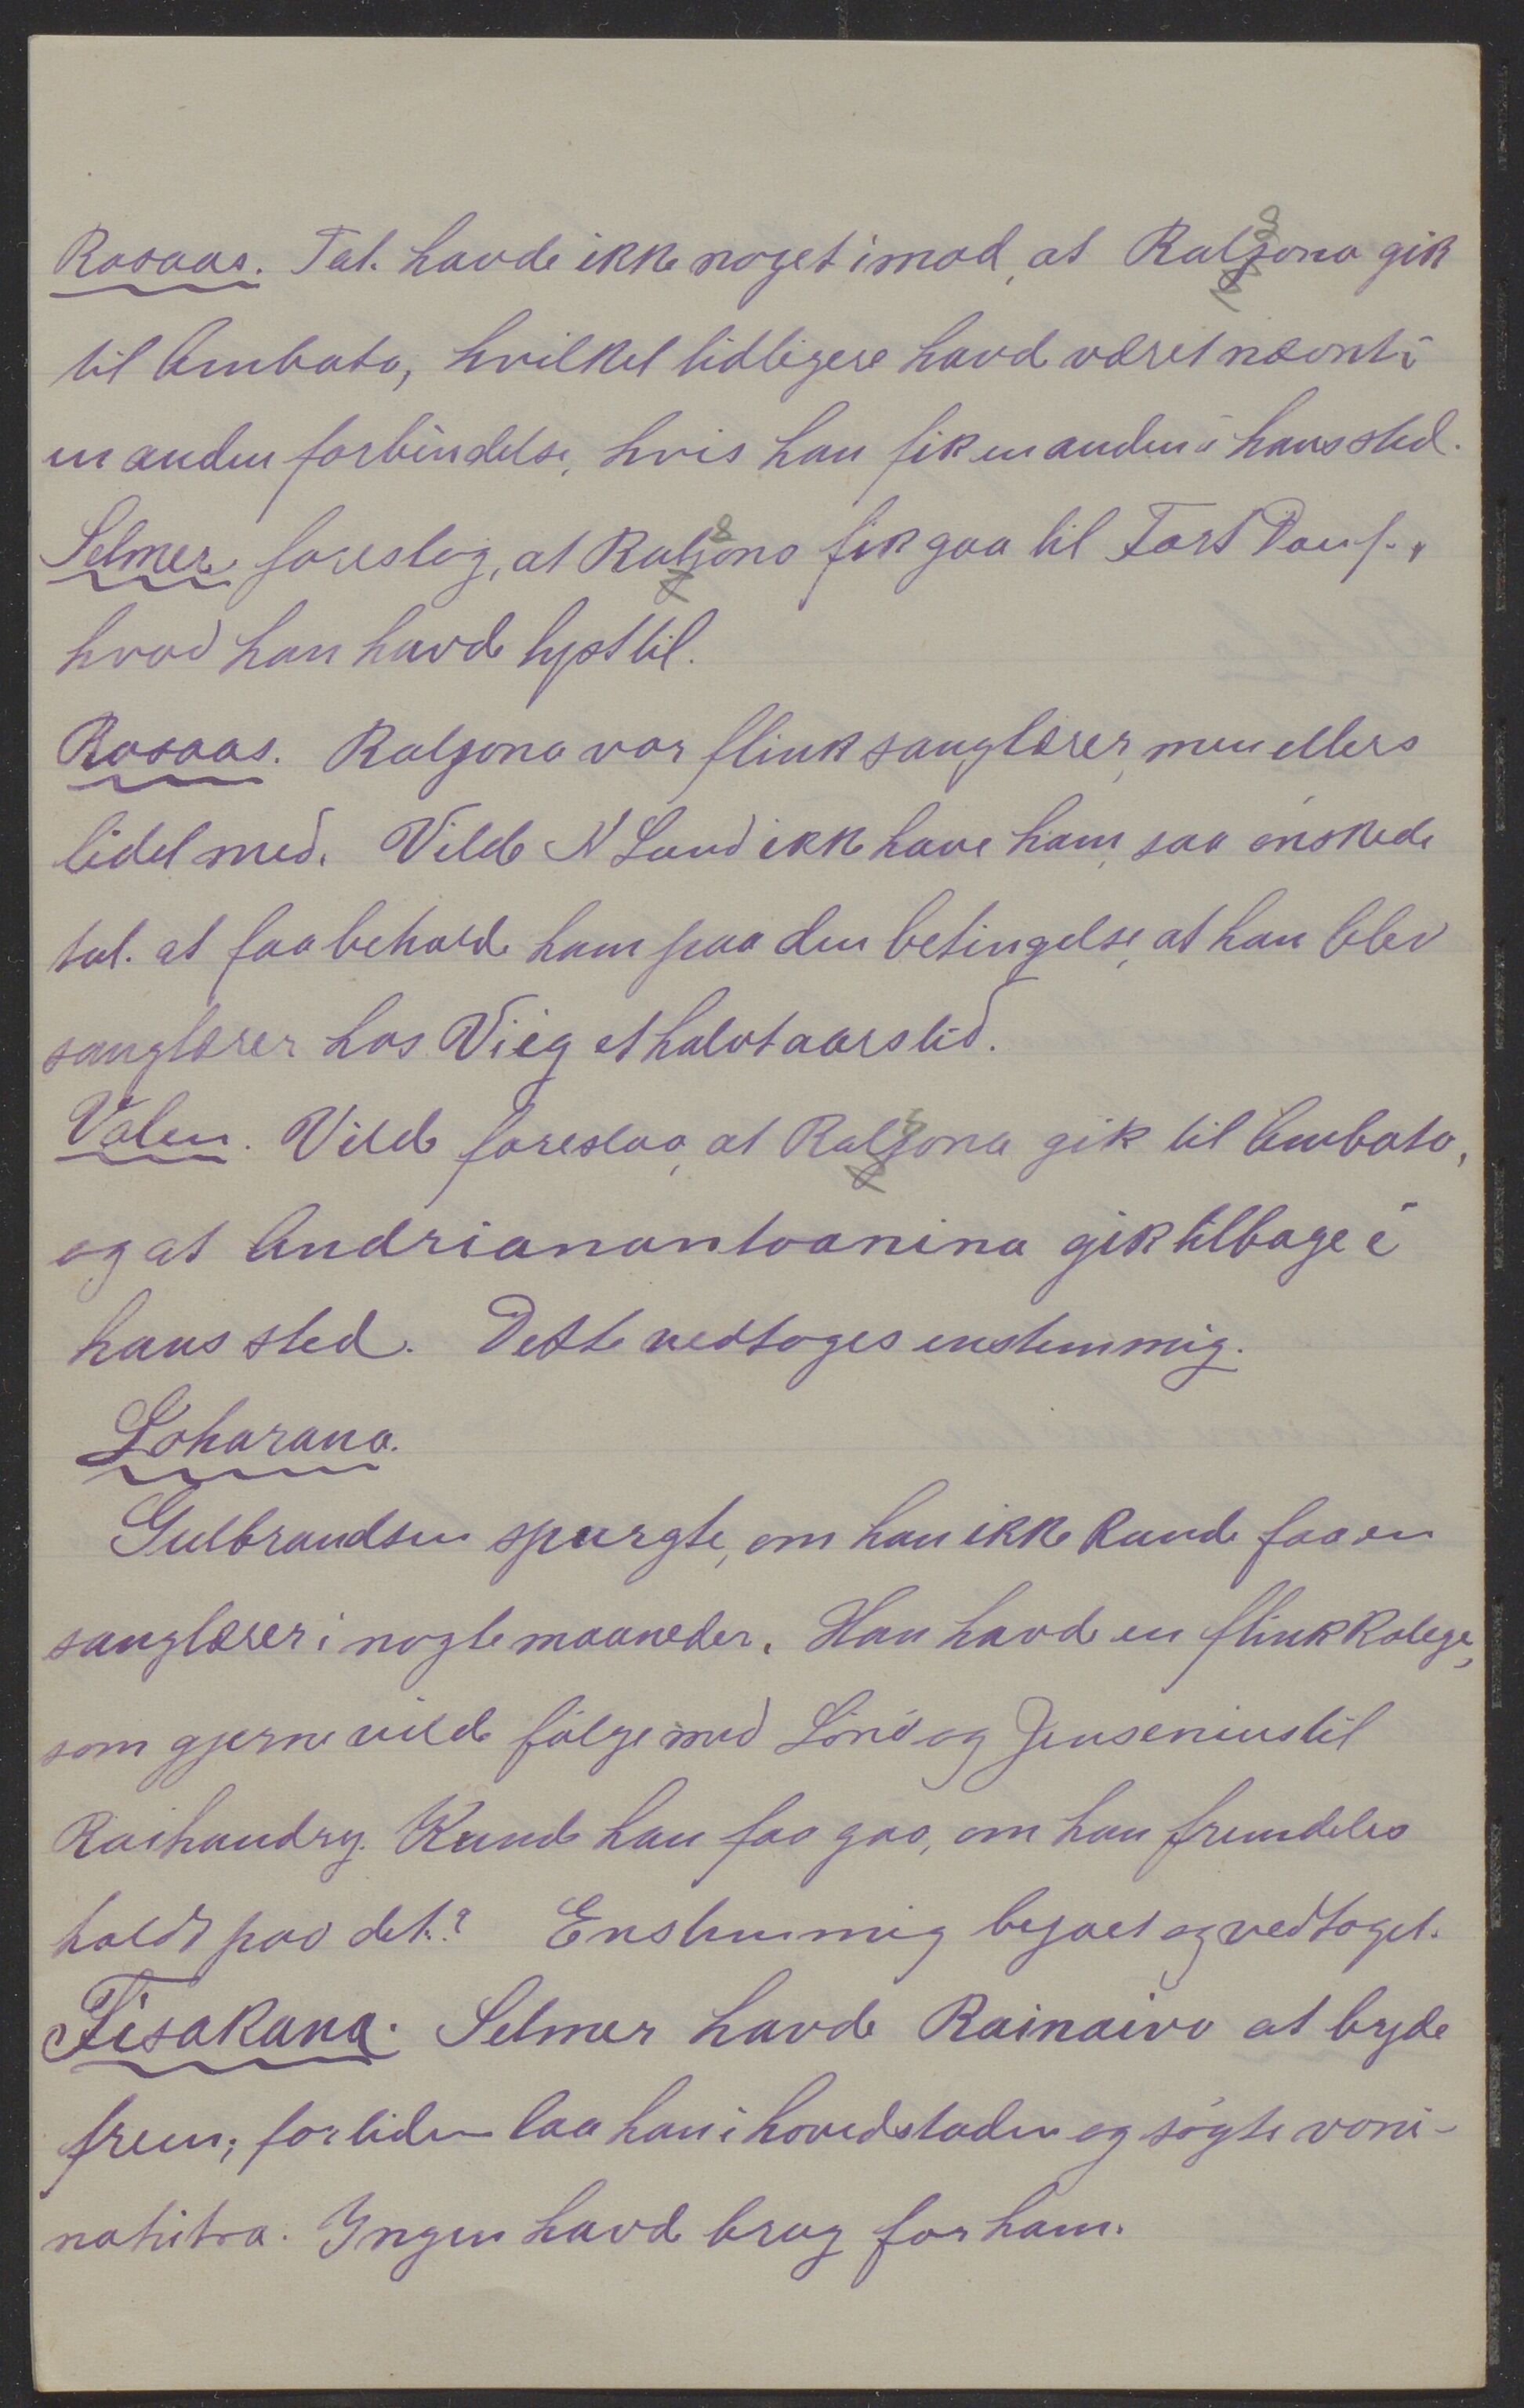 Rosaas. Tal. havde ikke noget imod, at Ralzona gik
til Ambato, hvilket tidligere havd været nævnt i
en anden forbindelse, hvis han fik en anden i hans sted.
Selmer foreslog, at Ralzona fik gaa til Fort Dauf.,
hvad han havde lyst til.
Rosaas. Ralzona var flink sanglærer, men ellers
lidet med. Vilde N Lund ikke have ham, saa ønskede
tal. at faa beholde ham paa den betingelse, at han blev
sanglærer hos Vieg et halvt aars tid.
Valen. Vilde foreslaa, at Ralzona gik til Ambato,
og at Andrianantoanina gik tilbage i
hans sted. Dette vedtoges enstemmig.
Loharano.
Gulbrandsen spurgte, om han ikke kunde faa en
sanglærer i nogle maaneder. Han havde en flink kolege,
som gjerne vilde følge med Lønø og Jensenius til
Raihandry. Kunde han faa gaa, om han fremdeles
holdt paa det? Enstemmig bejaet og vedtaget.
Fisakana. Selmer havde Rainaivo at byde
frem; for tiden laa han i hovedstaden og søgte voni-
nahitra. Ingen havde brug for ham.